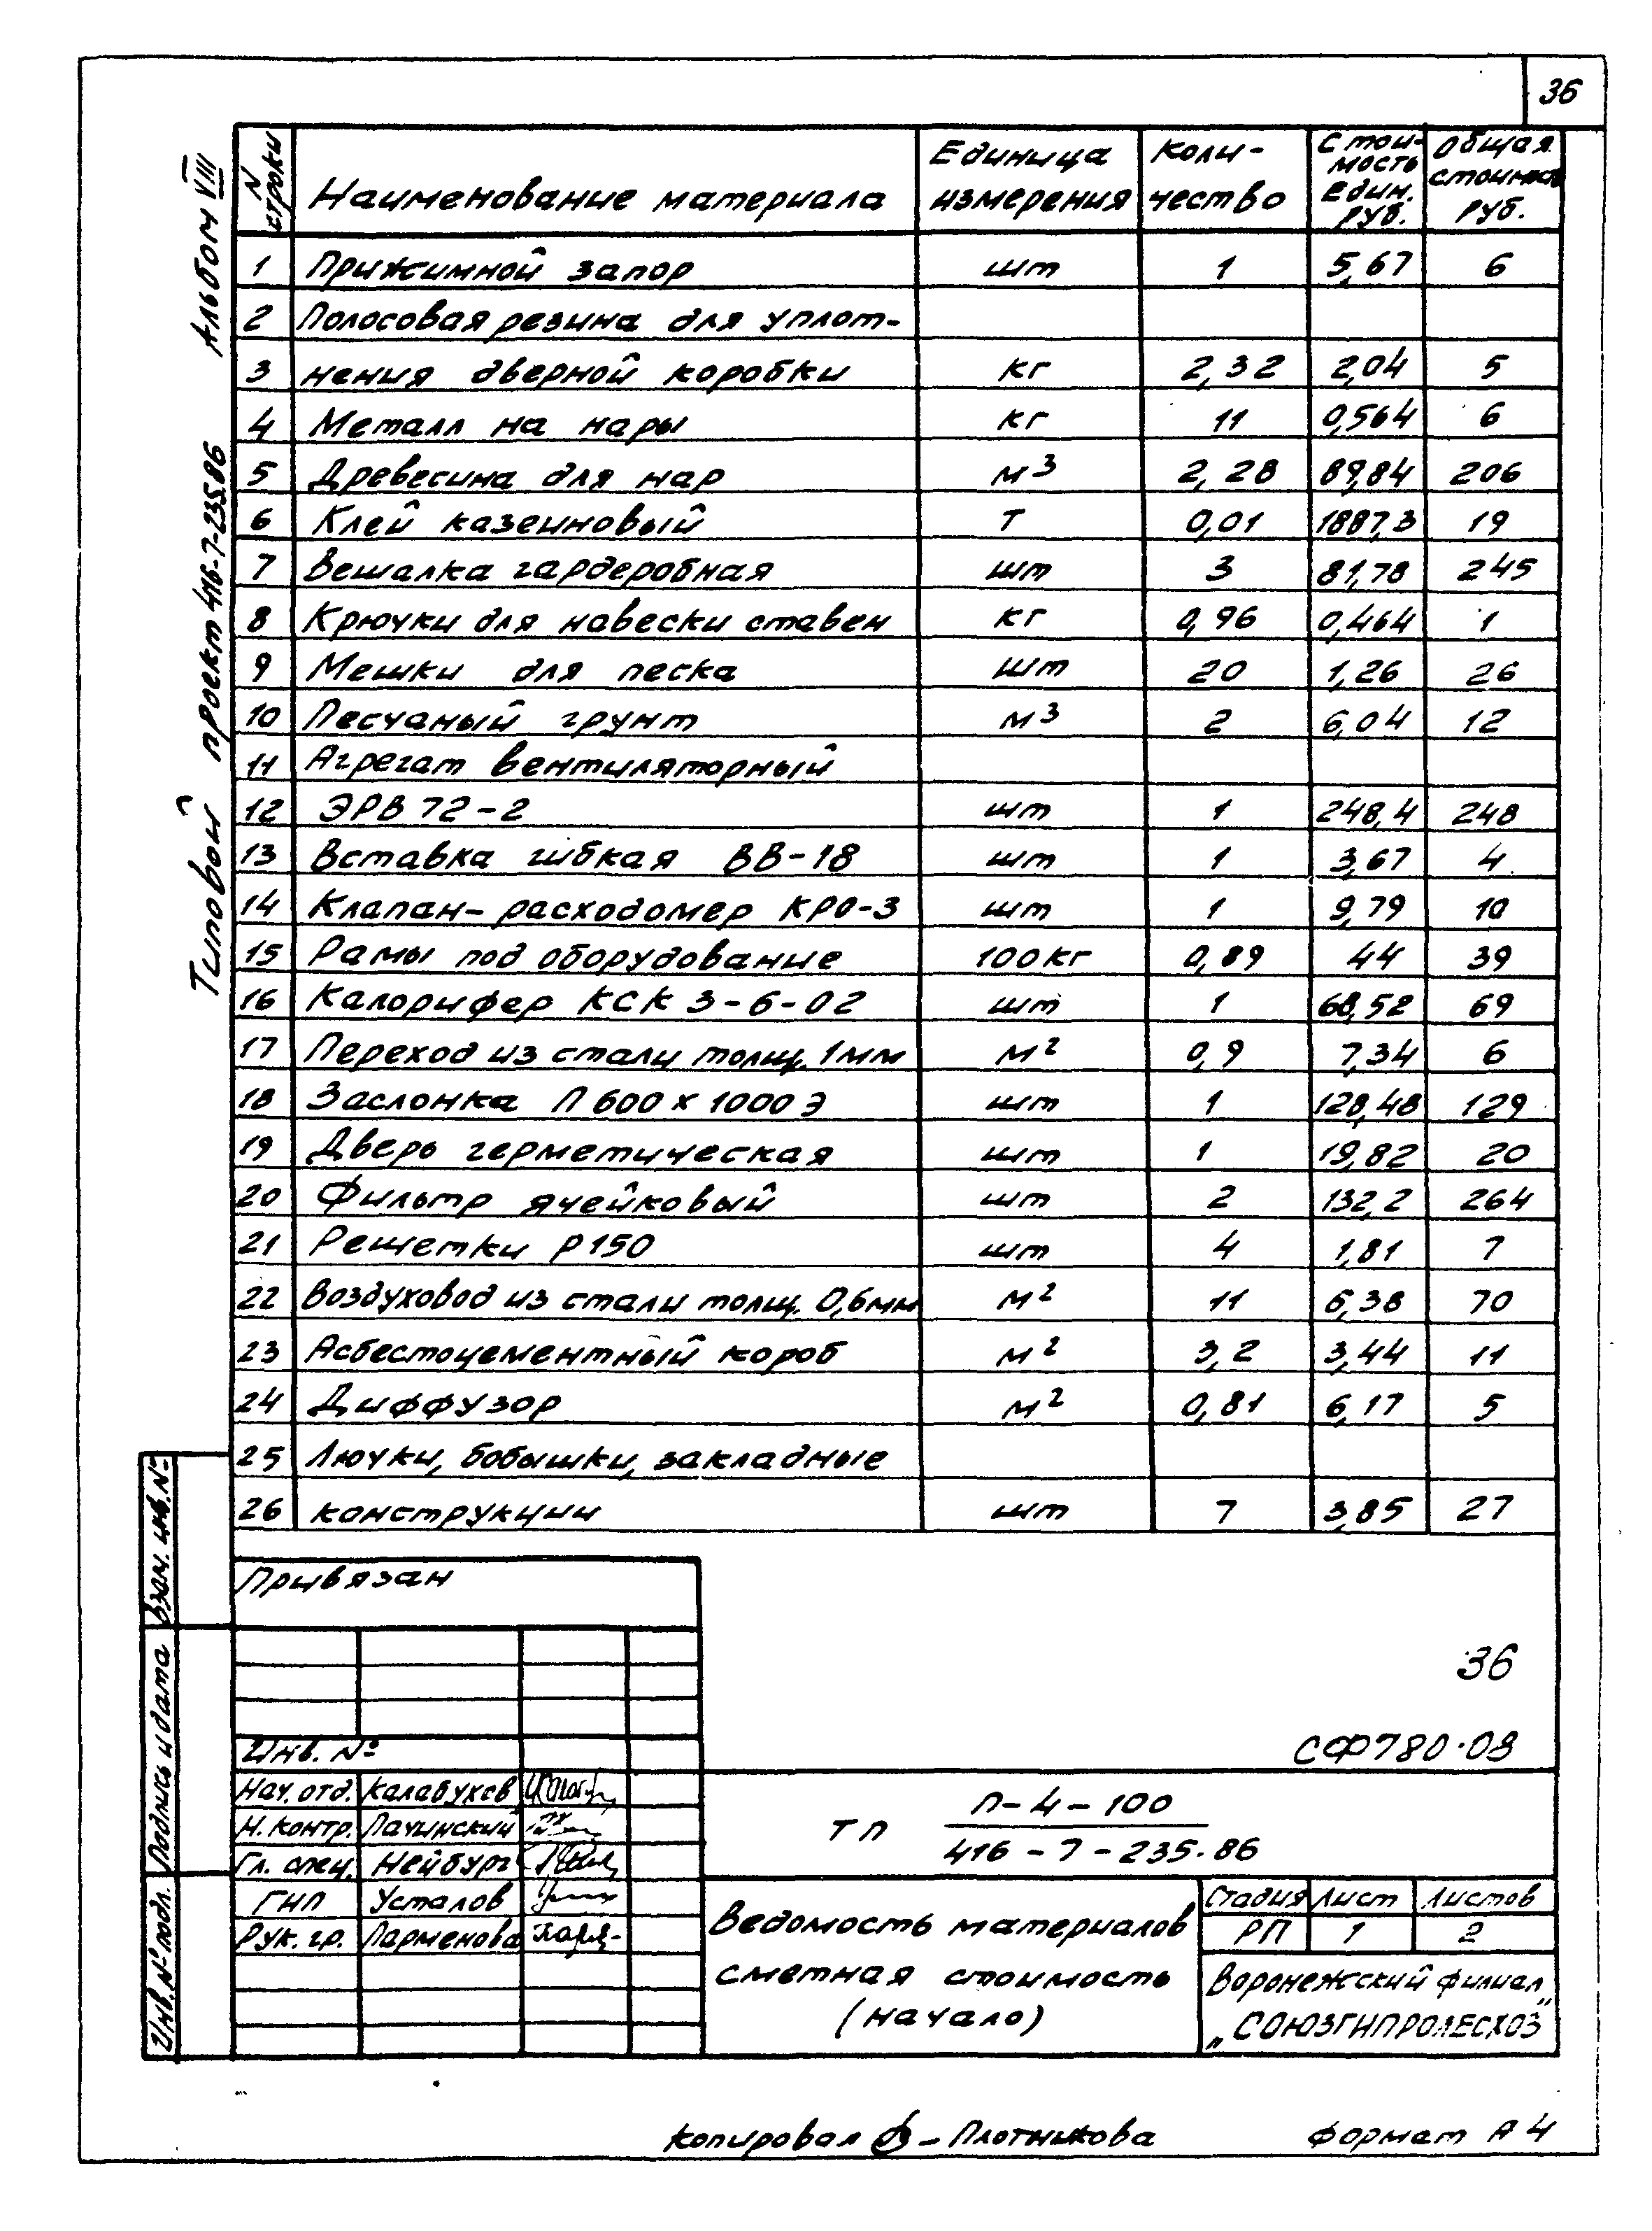 36
Альбом VIII
Типовой проект 416-7-235.86
N строки | Наименование материала | Единица измерения | Коли-чество | Стои-мость един. руб. | Общая стоимость руб.
1 | Прижимной запор | шт | 1 | 5,67 | 6
2 | Полосовая резина для уплот-
3 | нения дверной коробки | кг | 2,32 | 2,04 | 5
4 | Металл на нары | кг | 11 | 0,564 | 6
5 | Древесина для нар | м³ | 2,28 | 89,84 | 206
6 | Клей казеиновый | т | 0,01 | 1887,3 | 19
7 | Вешалка гардеробная | шт | 3 | 81,78 | 245
8 | Крючки для навески ставен | кг | 0,96 | 0,464 | 1
9 | Мешки для песка | шт | 20 | 1,26 | 26
10 | Песчаный грунт | м³ | 2 | 6,04 | 12
11 | Агрегат вентиляторный
12 | ЭРВ 72-2 | шт | 1 | 248,4 | 248
13 | Вставка гибкая ВВ-18 | шт | 1 | 3,67 | 4
14 | Клапан-расходомер КРО-3 | шт | 1 | 9,79 | 10
15 | Рамы под оборудование | 100кг | 0,89 | 44 | 39
16 | Калорифер КСК 3-6-02 | шт | 1 | 68,52 | 69
17 | Переход из стали толщ. 1мм | м² | 0,9 | 7,34 | 6
18 | Заслонка П 600 х 1000 Э | шт | 1 | 128,48 | 129
19 | Дверь герметическая | шт | 1 | 19,82 | 20
20 | Фильтр ячейковый | шт | 2 | 132,2 | 264
21 | Решетки Р150 | шт | 4 | 1,81 | 7
22 | Воздуховод из стали толщ. 0,6мм | м² | 11 | 6,38 | 70
23 | Асбестоцементный короб | м² | 3,2 | 3,44 | 11
24 | Диффузор | м² | 0,81 | 6,17 | 5
25 | Лючки, бобышки, закладные
26 | конструкции | шт | 7 | 3,85 | 27
Взам. инв. №
Подпись и дата
Инв. № подл.
Привязан
Инв. №
36
СФ780-03
Нач. отд. Калабухов
Н. контр. Лачинский
Гл. спец. Нейбург
ГИП Усталов
Рук. гр. Парменова
ТП П-4-100
416-7-235.86
Ведомость материалов
сметная стоимость
(начало)
Стадия Лист Листов
РП 1 2
Воронежский филиал
„СОЮЗГИПРОЛЕСХОЗ"
Копировал Плотникова Формат А4